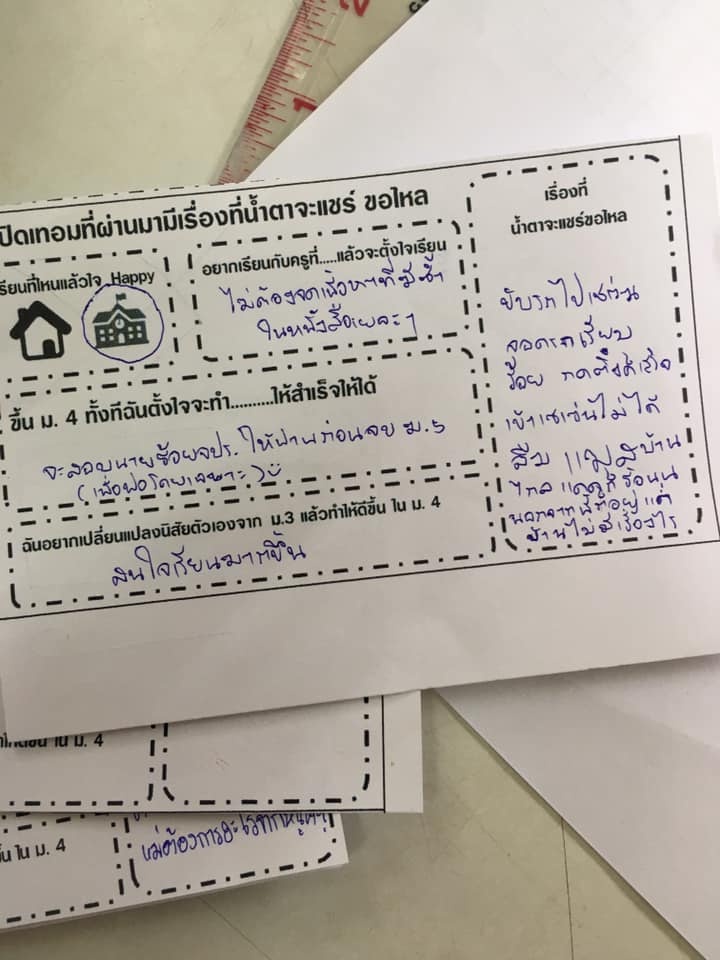 ปิดเทอมที่ผ่านมามีเรื่องที่น้ำตาจะแชร์ ขอไหล
เรียนที่ไหนแล้วใจ Happy
อยากเรียนกับครูที่.....แล้วจะตั้งใจเรียน
ไม่ต้องจดเนื้อหาที่มีซ้ำ
ในหนังสือเยอะๆ
ขึ้น ม. 4 ทั้งทีฉันตั้งใจจะทำ..........ให้สำเร็จให้ได้
จะสอบนายร้อยจปร. ให้ผ่านก่อนจบ ม.5
(เพื่อพ่อโดยเฉพาะ)
ฉันอยากเปลี่ยนแปลงนิสัยตัวเองจาก ม.3 แล้วทำให้ดีขึ้น ใน ม. 4
สนใจเรียนมากขึ้น
เรื่องที่
น้ำตาจะแชร์ขอไหล
ขับรถไปเซเว่น
จอดรถเรียบ
ร้อย
เข้าเซเว่นไม่ได้
ลืม แมส บ้าน
ไกล แดดก็ร้อน
นอกจากนี้ก็อยู่แต่
บ้านไม่มีเรื่องไร
ใน ม. 4
ใน ม. 4
แม่ต้องการอะไรจากหนู